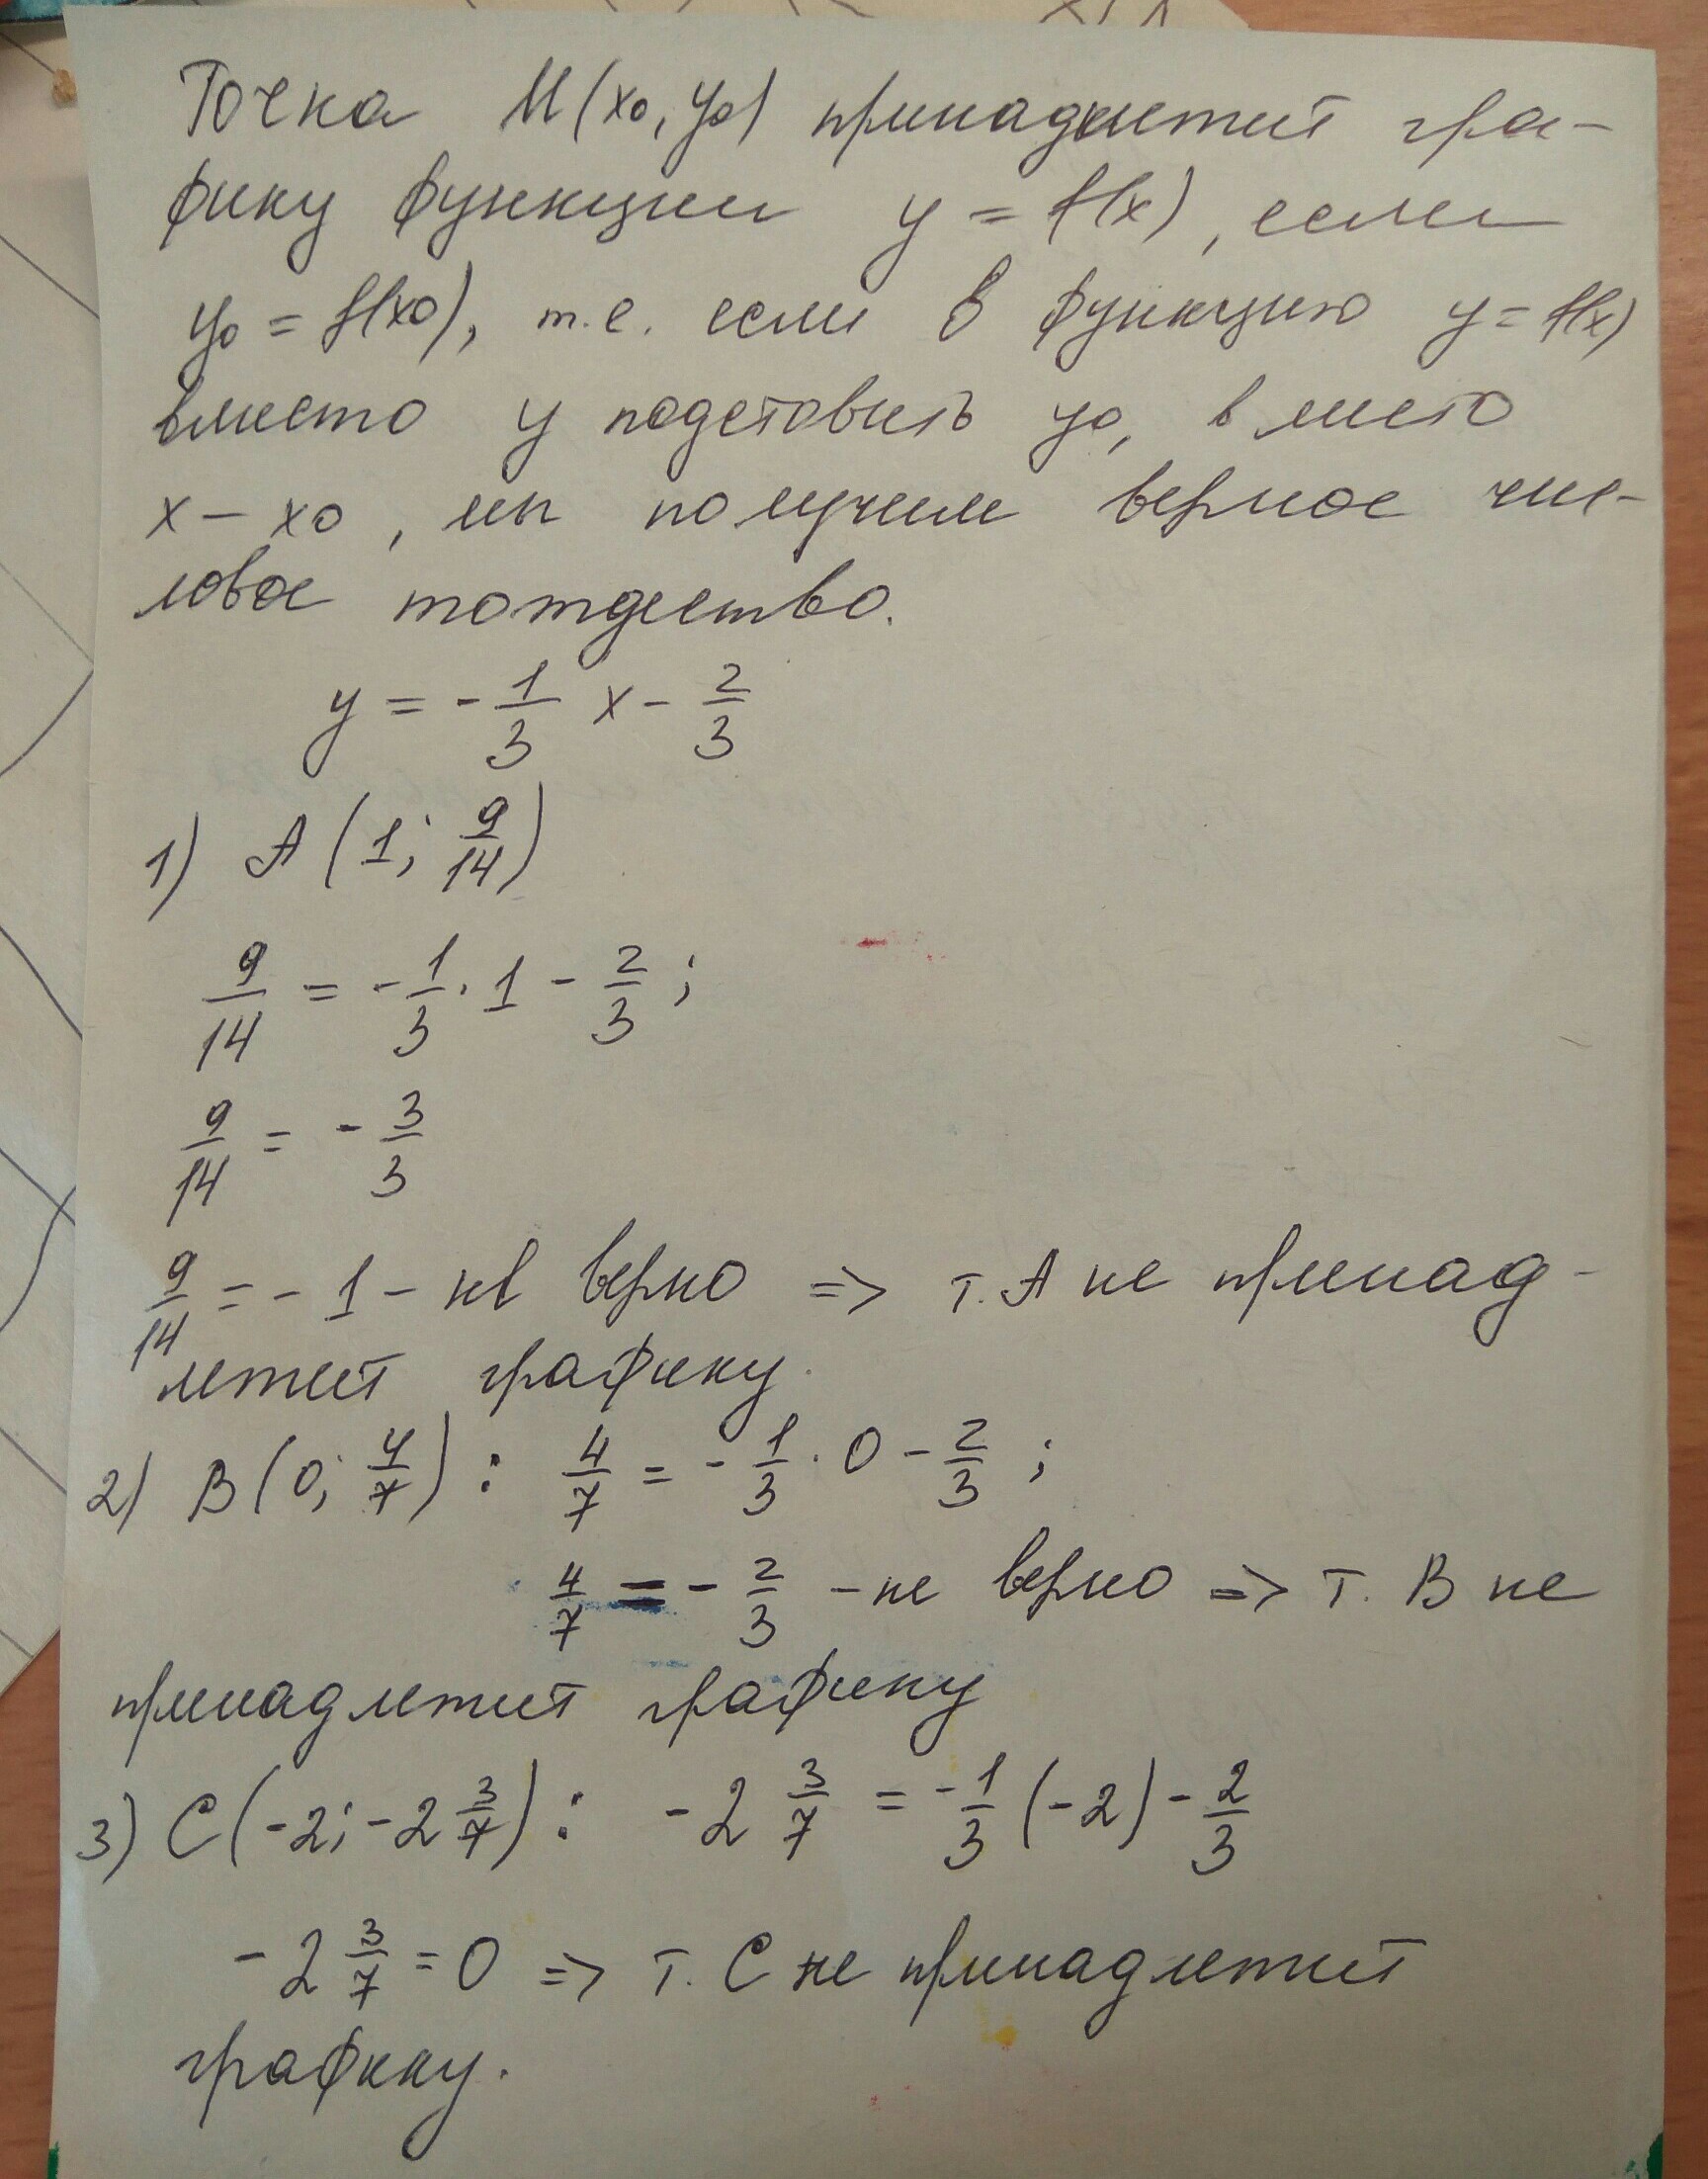 Точка M(x0, y0) принадлежит гра-
фику функции y = f(x), если
y0 = f(x0), т.е. если в функцию y = f(x)
вместо y подставить y0, вместо
x – x0, мы получим верное чис-
ловое тождество.
y = - 1/3 x - 2/3
1) A (1; 9/14)
9/14 = - 1/3 · 1 - 2/3 ;
9/14 = - 3/3
9/14 = - 1 – не верно => т. A не принад-
лежит графику.
2) B (0; 4/7) : 4/7 = - 1/3 · 0 - 2/3 ;
4/7 = - 2/3 – не верно => т. B не
принадлежит графику
3) C (-2; -2 3/7) : -2 3/7 = - 1/3 (-2) - 2/3
-2 3/7 = 0 => т. C не принадлежит
графику.